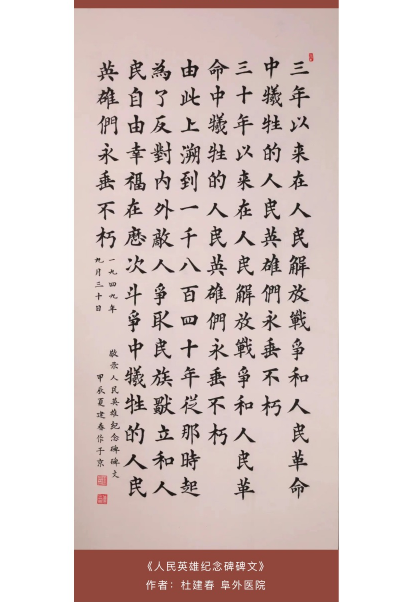 三年以来在人民解放戰爭和人民革命
中犧牲的人民英雄們永垂不朽
三十年以来在人民解放戰爭和人民革
命中犧牲的人民英雄們永垂不朽
由此上溯到一千八百四十年從那時起
為了反對内外敵人爭取民族獨立和人
民自由幸福在歷次斗爭中犧牲的人民
英雄們永垂不朽
一九四九年
九月三十日
敬录人民英雄纪念碑碑文
甲辰夏建春作于京
《人民英雄纪念碑碑文》
作者：杜建春 阜外医院